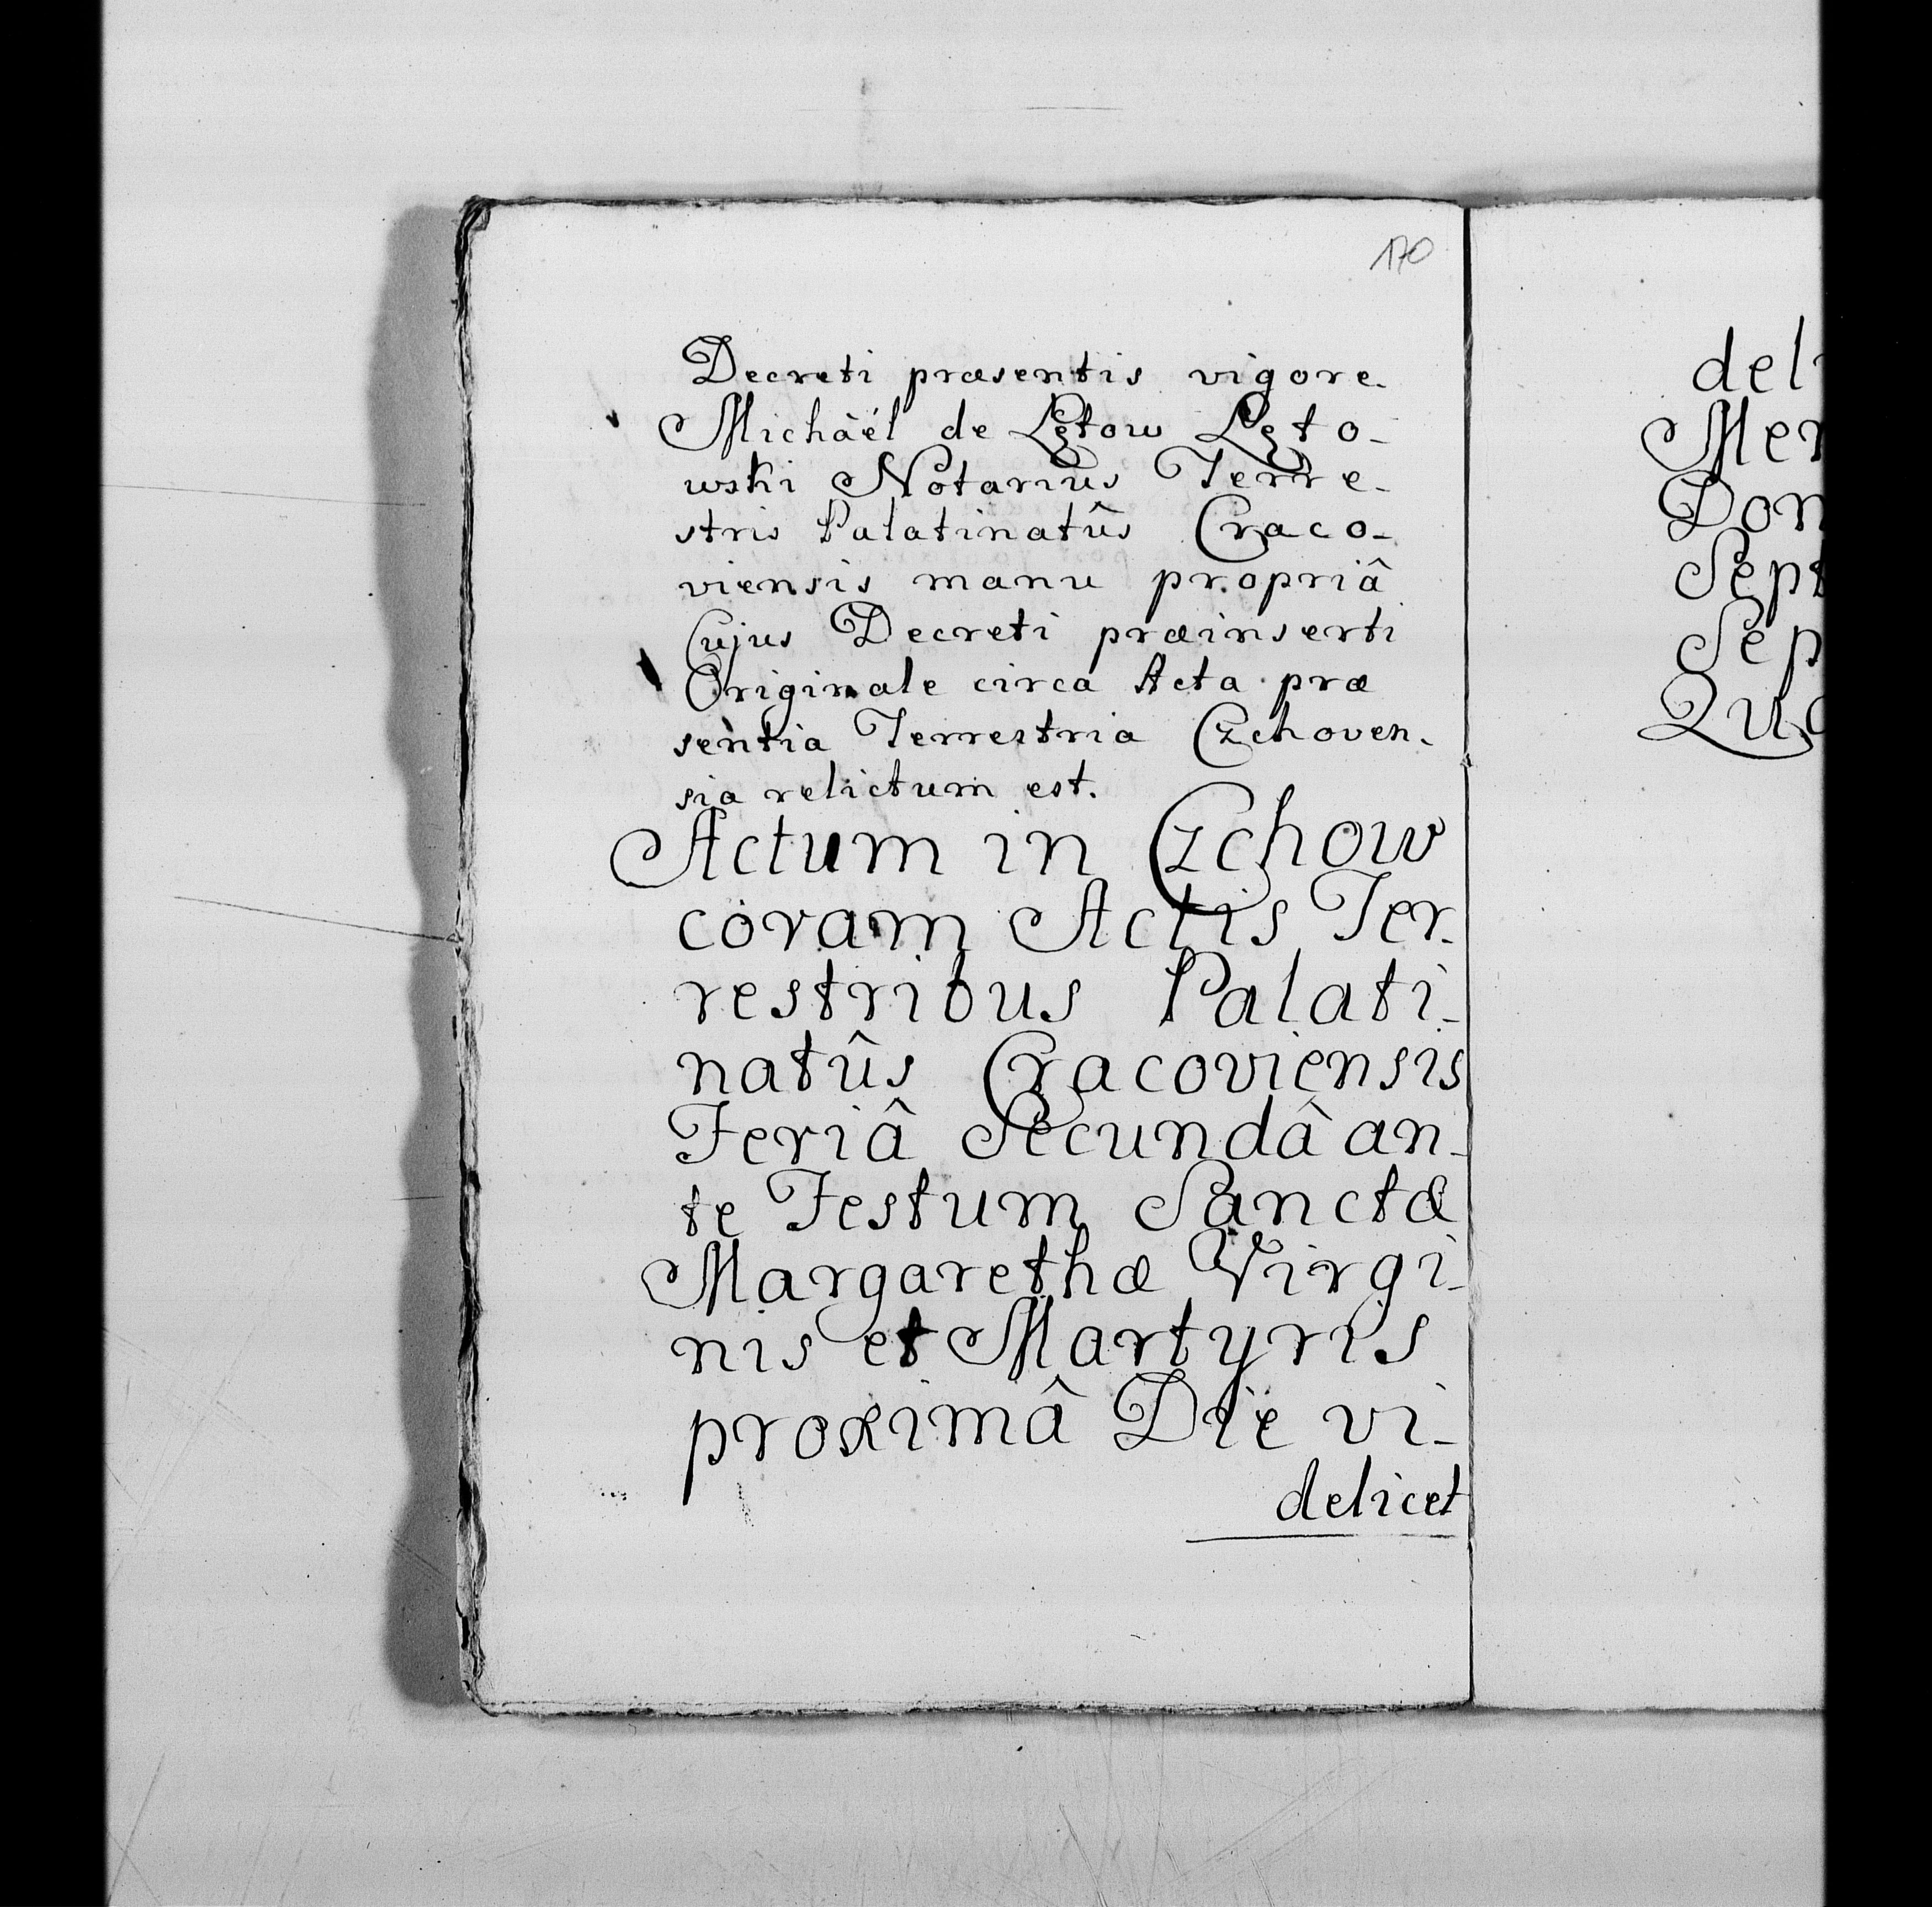 170
Decreti præsentis vigore.
Michàél de Lętow Lęto-
wski Notarius Terre-
stris Palatinatûs Craco-
viensis manu propriâ
Cujus Decreti præinserti
Originale circa Acta præ
sentia Terrestria Czchoven-
sia relictum est.
Actum in Czchow
coram Actis Ter-
restribus Palati-
natûs Cracoviensis
Feriâ Secundâ an-
te Festum Sanctæ
Margarethæ Virgi-
nis et Martyris
proximâ Dïe vi-
delicet
del
Mer
Don
Sept
Sep
Qua